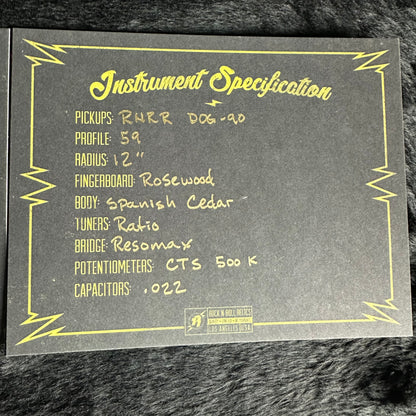 Instrument Specification
PICKUPS: RNRR DOG-90
PROFILE: 59
RADIUS: 12"
FINGERBOARD: Rosewood
BODY: Spanish Cedar
TUNERS: Ratio
BRIDGE: Resomax
POTENTIOMETERS: CTS 500K
CAPACITORS: .022
ROCK N ROLL RELICS
LOS ANGELES USA